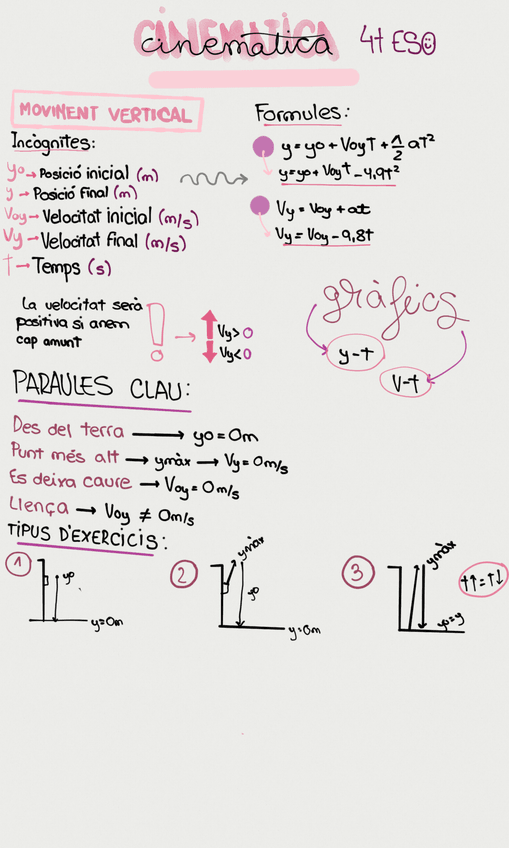 cinemàtica 4t ESO
MOVIMENT VERTICAL
Incògnites:
yo → Posició inicial (m)
y → Posició final (m)
Voy → Velocitat inicial (m/s)
Vy → Velocitat final (m/s)
t → Temps (s)
Formules:
y = yo + Voy T + 1/2 aT²
y = yo + Voy t - 4,9t²
Vy = Voy + at
Vy = Voy - 9,8t
La velocitat serà
positiva si anem
cap amunt
! → ↑ Vy > 0
↓ Vy < 0
gràfics
y-t
v-t
PARAULES CLAU:
Des del terra → yo = 0m
Punt més alt → ymàx → Vy = 0m/s
Es deixa caure → Voy = 0m/s
Llença → Voy ≠ 0m/s
TIPUS D'EXERCICIS:
1
yo
y=0m
2
ymàx
yo
y=0m
3
ymàx
yo=y
t↑=t↓